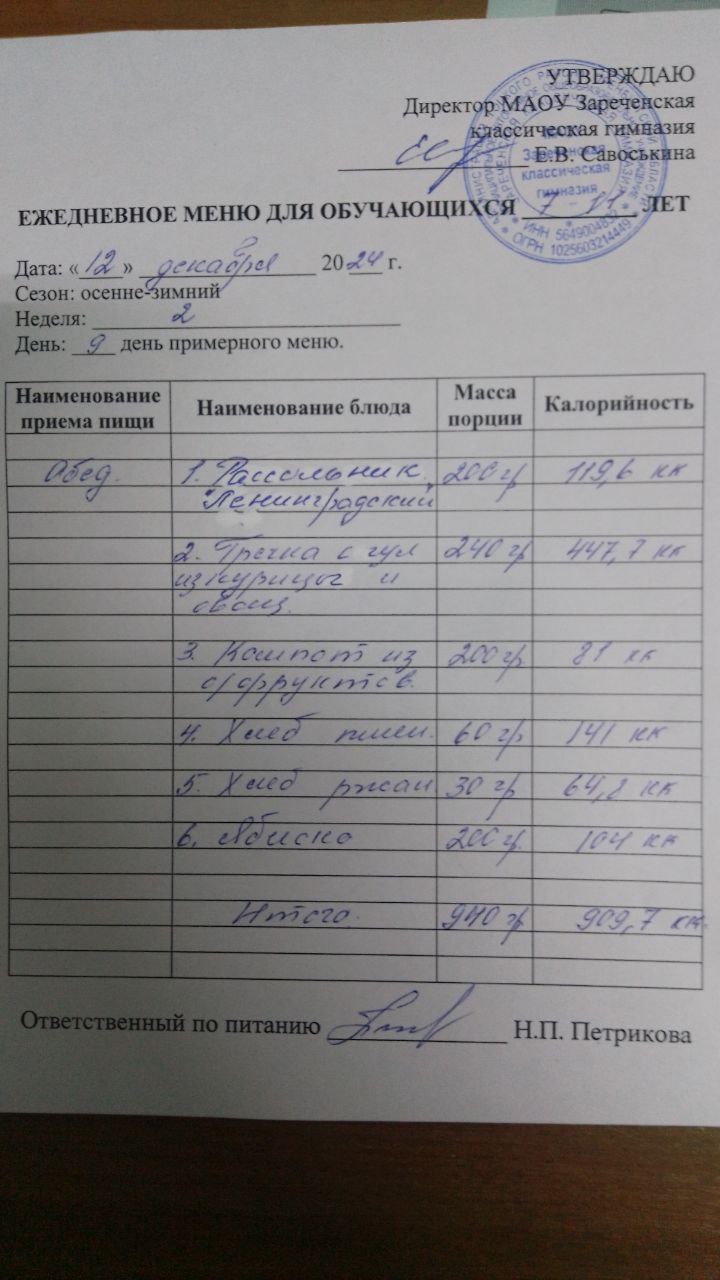 УТВЕРЖДАЮ
Директор МАОУ Зареченская
классическая гимназия
Е.В. Савоськина
Зареченская
классическая
гимназия
* ИНН 5649004832 *
* ОГРН 1025603214449 *
ЕЖЕДНЕВНОЕ МЕНЮ ДЛЯ ОБУЧАЮЩИХСЯ 7 11 ЛЕТ
Дата: «12» декабря 2024 г.
Сезон: осенне-зимний
Неделя: 2
День: 9 день примерного меню.
Наименование приема пищи Наименование блюда Масса порции Калорийность
Обед. 1. Рассольник 200 гр 119,6 кк
"Ленинградский"
2. Гречка с гул 240 гр 447,7 кк
из курицы и
овощ.
3. Компот из 200 гр 81 кк
с/фруктов.
4. Хлеб пшен. 60 гр 141 кк
5. Хлеб ржан. 30 гр 64,8 кк
6. Яблоко 200 гр. 104 кк
Итого. 940 гр 909,7 кк.
Ответственный по питанию Н.П. Петрикова